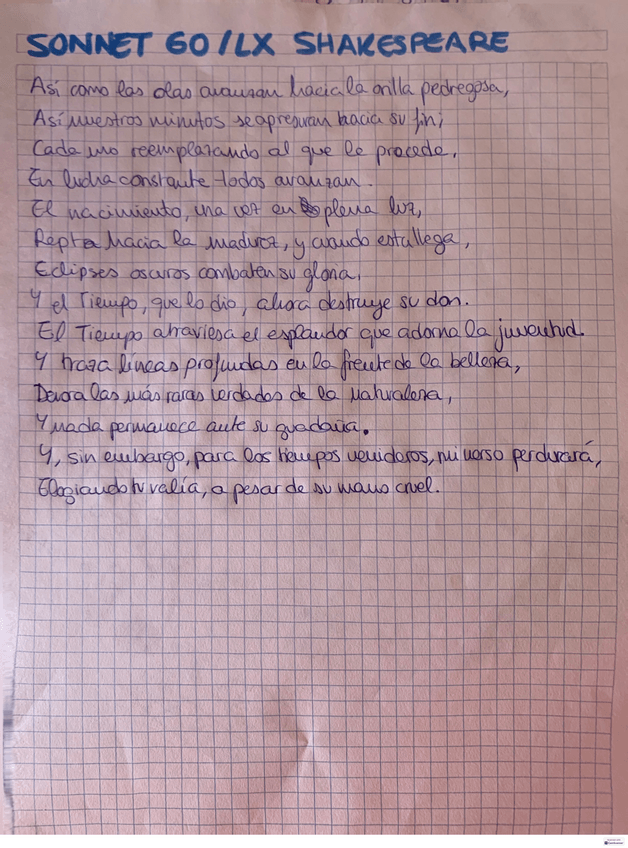 SONNET 60/LX SHAKESPEARE
Así como las olas avanzan hacia la orilla pedregosa,
Así nuestros minutos se apresuran hacia su fin;
Cada uno reemplazando al que le precede,
En lucha constante todos avanzan.
El nacimiento, una vez en plena luz,
Repta hacia la madurez, y cuando esta llega,
Eclipses oscuros combaten su gloria,
Y el Tiempo, que lo dio, ahora destruye su don.
El Tiempo atraviesa el esplendor que adorna la juventud.
Y traza líneas profundas en la frente de la belleza,
Devora las más raras verdades de la naturaleza,
Y nada permanece ante su guadaña.
Y, sin embargo, para los tiempos venideros, mi verso perdurará,
Elogiando tu valía, a pesar de su mano cruel.